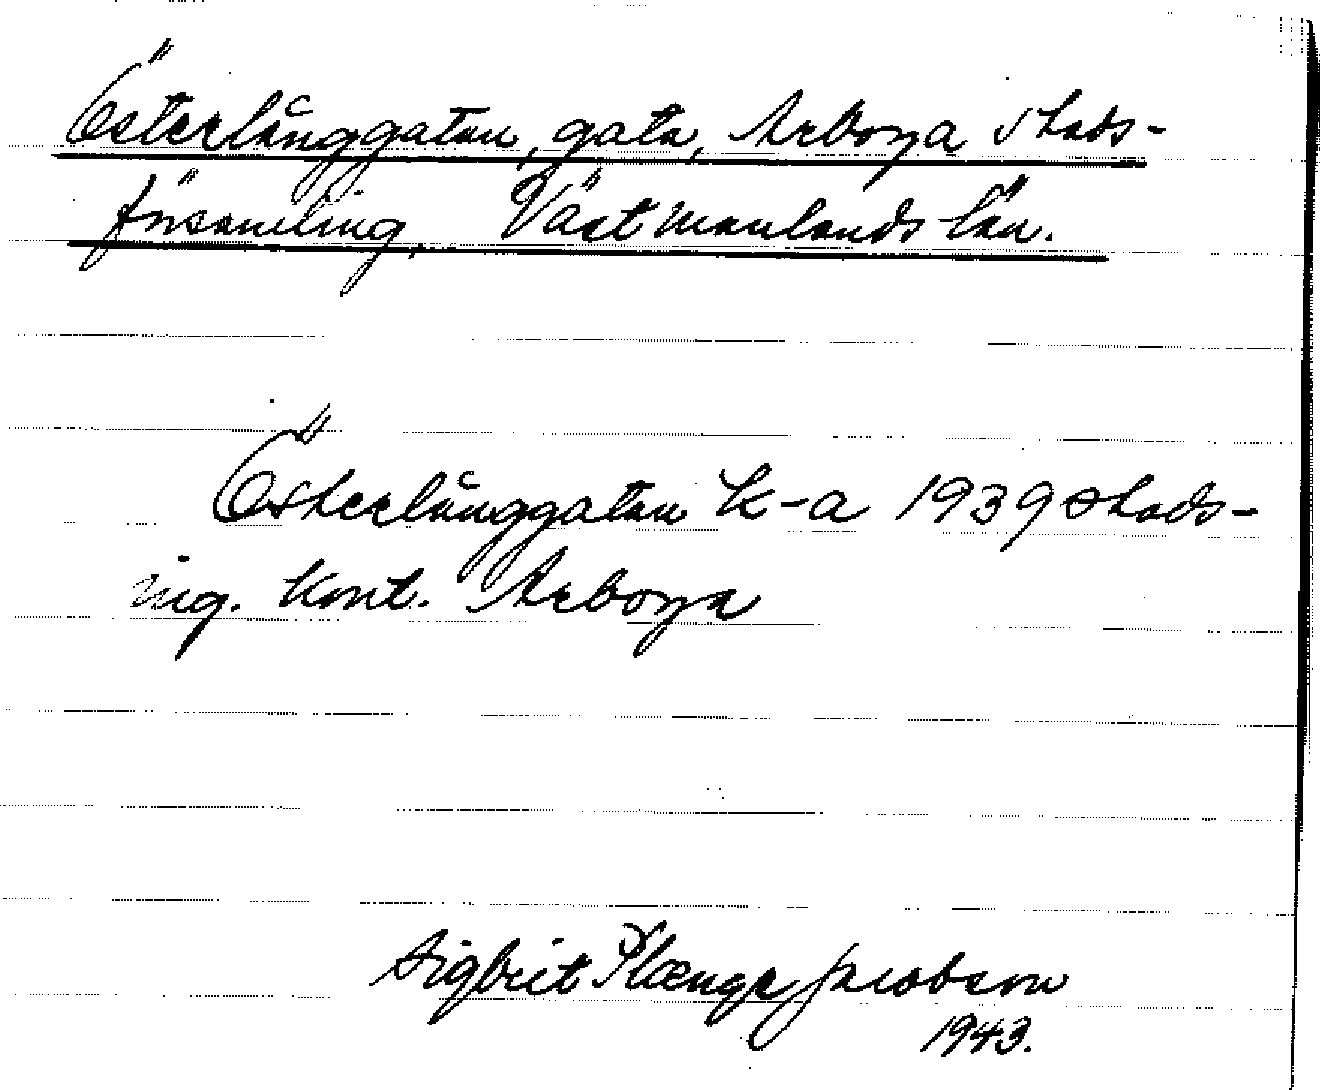 Österlånggatan, gata, Arboga stads-
församling, Västmanlands län.
Österlånggatan k-a 1939 stads-
ing. kont. Arboga
Sigbrit Plænge Jacobson
1943.